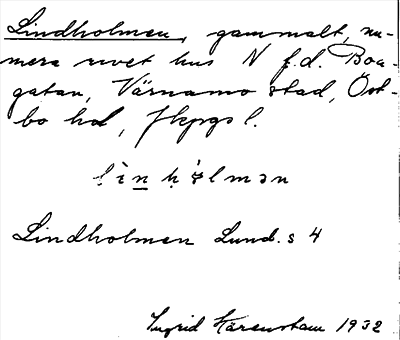 Lindholmen, gammalt, nu-
mera rivet hus N f.d. Boa-
gatan, Värnamo stad, Öst-
bo hd, Jkpgs l.
lìn hòlmən
Lindholmen Lund. s 4
Ingrid Kärenstam 1932